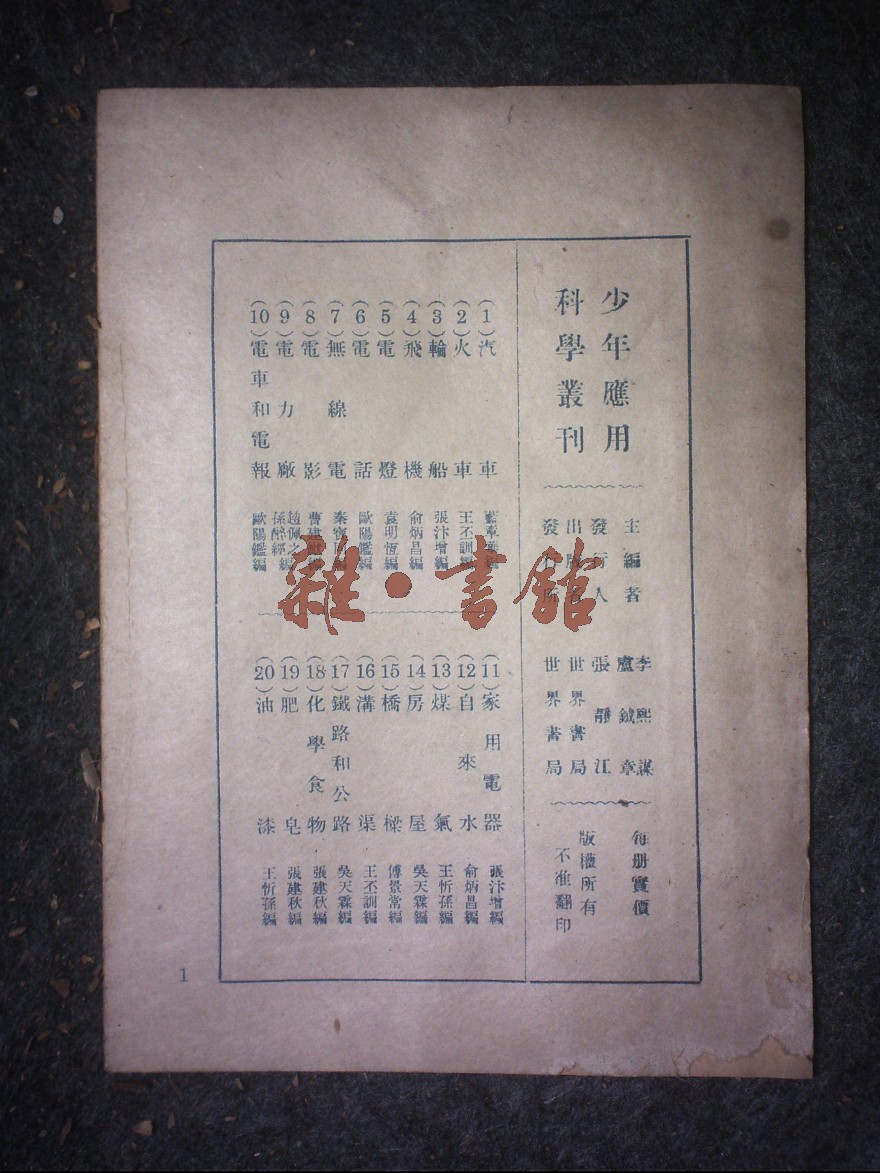 少年應用
科學叢刊
主編者 李熙謀
盧鉞章
發行人 張靜江
出版者 世界書局
發行所 世界書局
每册實價
版權所有
不准翻印
(1)汽車
(2)火車 王丕訓編
(3)輪船 張汴增編
(4)飛機 俞炳昌編
(5)電燈 袁明恆編
(6)電話 歐陽鑑編
(7)無線電
(8)電影
(9)電力廠 趙佩之 孫醉經編
(10)電車和電報 歐陽鑑編
(11)家用電器 張汴增編
(12)自來水 俞炳昌編
(13)煤氣 王忻孫編
(14)房屋 吳天霖編
(15)橋樑 傅景常編
(16)溝渠 王丕訓編
(17)鐵路和公路 吳天霖編
(18)化學食物 張建秋編
(19)肥皂 張建秋編
(20)油漆 王忻孫編
1
雜·書舘